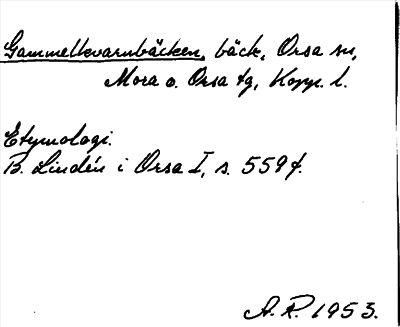 Gammelkvarnbäcken, bäck, Orsa sn,
Mora o. Orsa tg, Kopp. l.
Etymologi.
B. Lindén i Orsa I, s. 559 f.
A.R. 1953.